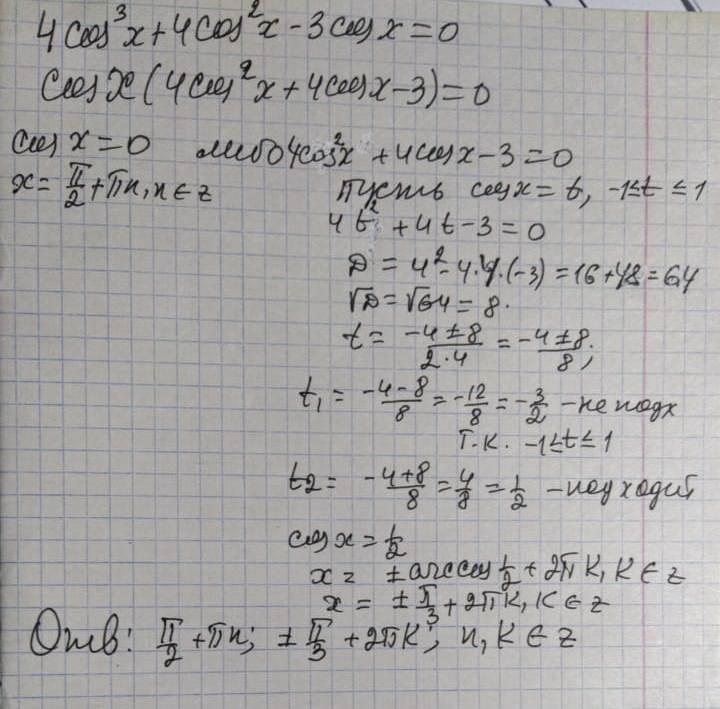 4cos³x + 4cos²x - 3cosx = 0
cosx(4cos²x + 4cosx - 3) = 0
cosx = 0 либо 4cos²x + 4cosx - 3 = 0
x = π/2 + πn, n ∈ z пусть cosx = t, -1 ≤ t ≤ 1
4t² + 4t - 3 = 0
D = 4² - 4·4·(-3) = 16 + 48 = 64
√D = √64 = 8.
t = (-4 ± 8)/(2·4) = (-4 ± 8)/8;
t₁ = (-4 - 8)/8 = -12/8 = -3/2 - не подх
т.к. -1 ≤ t ≤ 1
t2 = (-4 + 8)/8 = 4/8 = 1/2 - подходит
cosx = 1/2
x = ± arccos 1/2 + 2πk, k ∈ z
x = ± π/3 + 2πk, k ∈ z
Отв: π/2 + πn; ± π/3 + 2πk; n, k ∈ z